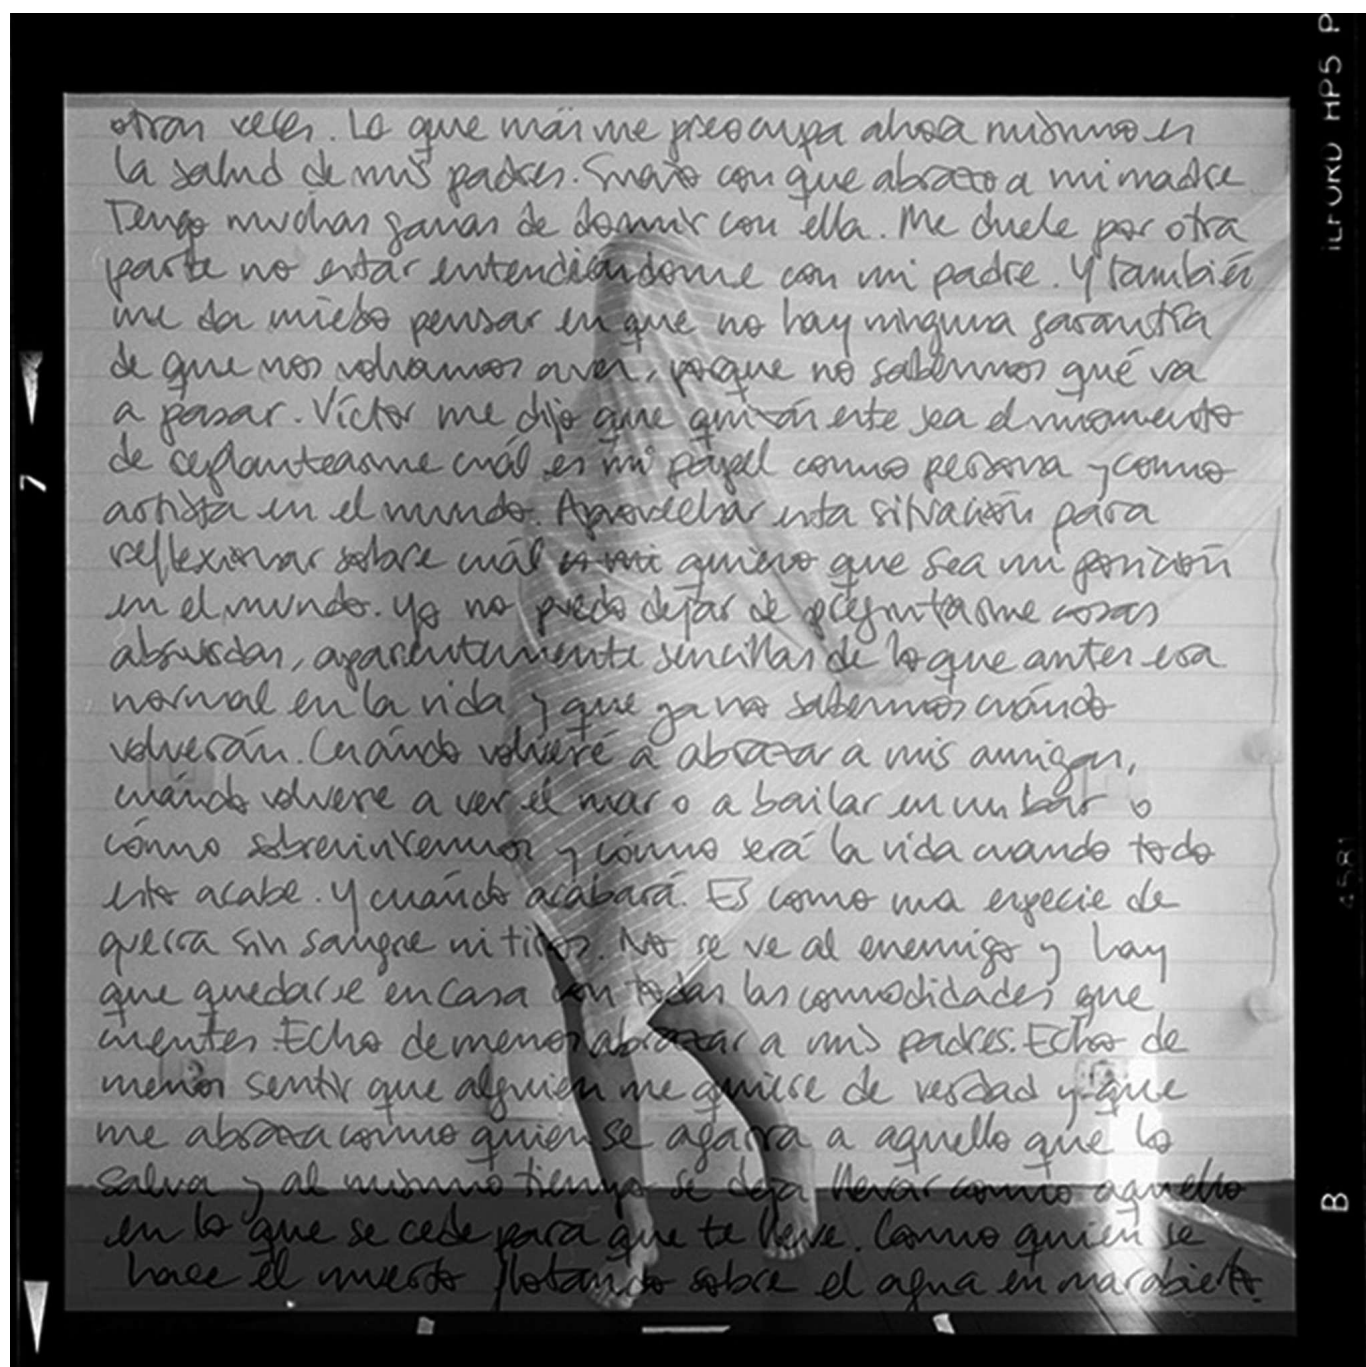 otras veces. Lo que más me preocupa ahora mismo es
la salud de mis padres. Sueño con que abrazo a mi madre
Tengo muchas ganas de dormir con ella. Me duele por otra
parte no estar entendiéndome con mi padre. Y también
me da miedo pensar en que no hay ninguna garantía
de que nos volvamos a ver, porque no sabemos qué va
a pasar. Víctor me dijo que quizás este sea el momento
de replantearme cuál es mi papel como persona y como
artista en el mundo. Aprovechar esta situación para
reflexionar sobre cuál es mi quiero que sea mi posición
en el mundo. Yo no puedo dejar de preguntarme cosas
absurdas, aparentemente sencillas de lo que antes era
normal en la vida y que ya no sabemos cuándo
volverán. Cuándo volveré a abrazar a mis amigas,
cuándo volveré a ver el mar o a bailar en un bar o
cómo sobreviviremos y cómo será la vida cuando todo
esto acabe. Y cuándo acabará. Es como una especie de
guerra sin sangre ni tiros. No se ve al enemigo y hay
que quedarse en casa con todas las comodidades que
cuentes. Echo de menos abrazar a mis padres. Echo de
menos sentir que alguien me quiere de verdad y que
me abraza como quien se agarra a aquello que lo
salva y al mismo tiempo se deja llevar como aquello
en lo que se cede para que te lleve. Como quien se
hace el muerto flotando sobre el agua en mar abierto.
ILFORD HP5 P
7
4581
B